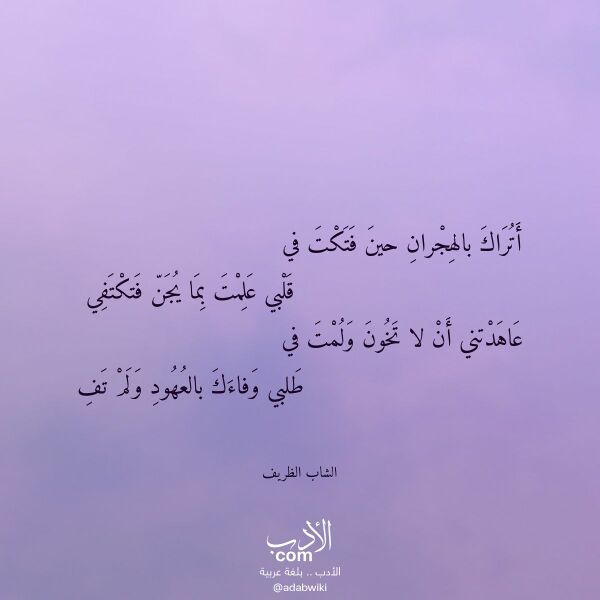 أَتُرَاكَ بالهِجْرانِ حينَ فَتَكْتَ في
قَلْبي عَلِمْتَ بِمَا يُجَنّ فَتكْتَفِي
عَاهَدْتني أَنْ لا تَخُونَ وَلُمْتَ في
طَلبي وَفاءَكَ بالعُهُودِ وَلَمْ تَفِ
الشاب الظريف
الأدب
.com
الأدب .. بلغة عربية
@adabwiki